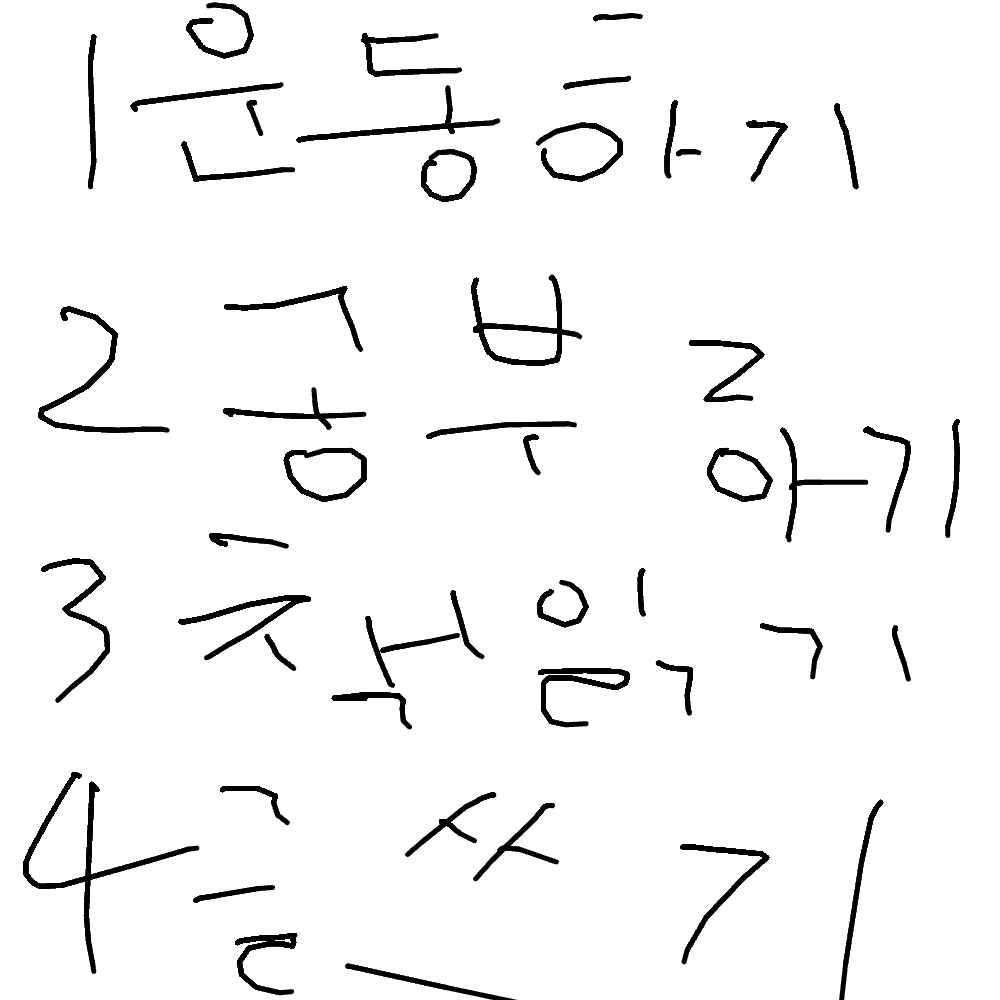 1 운동하기
2 공부하기
3 책읽기
4 글쓰기